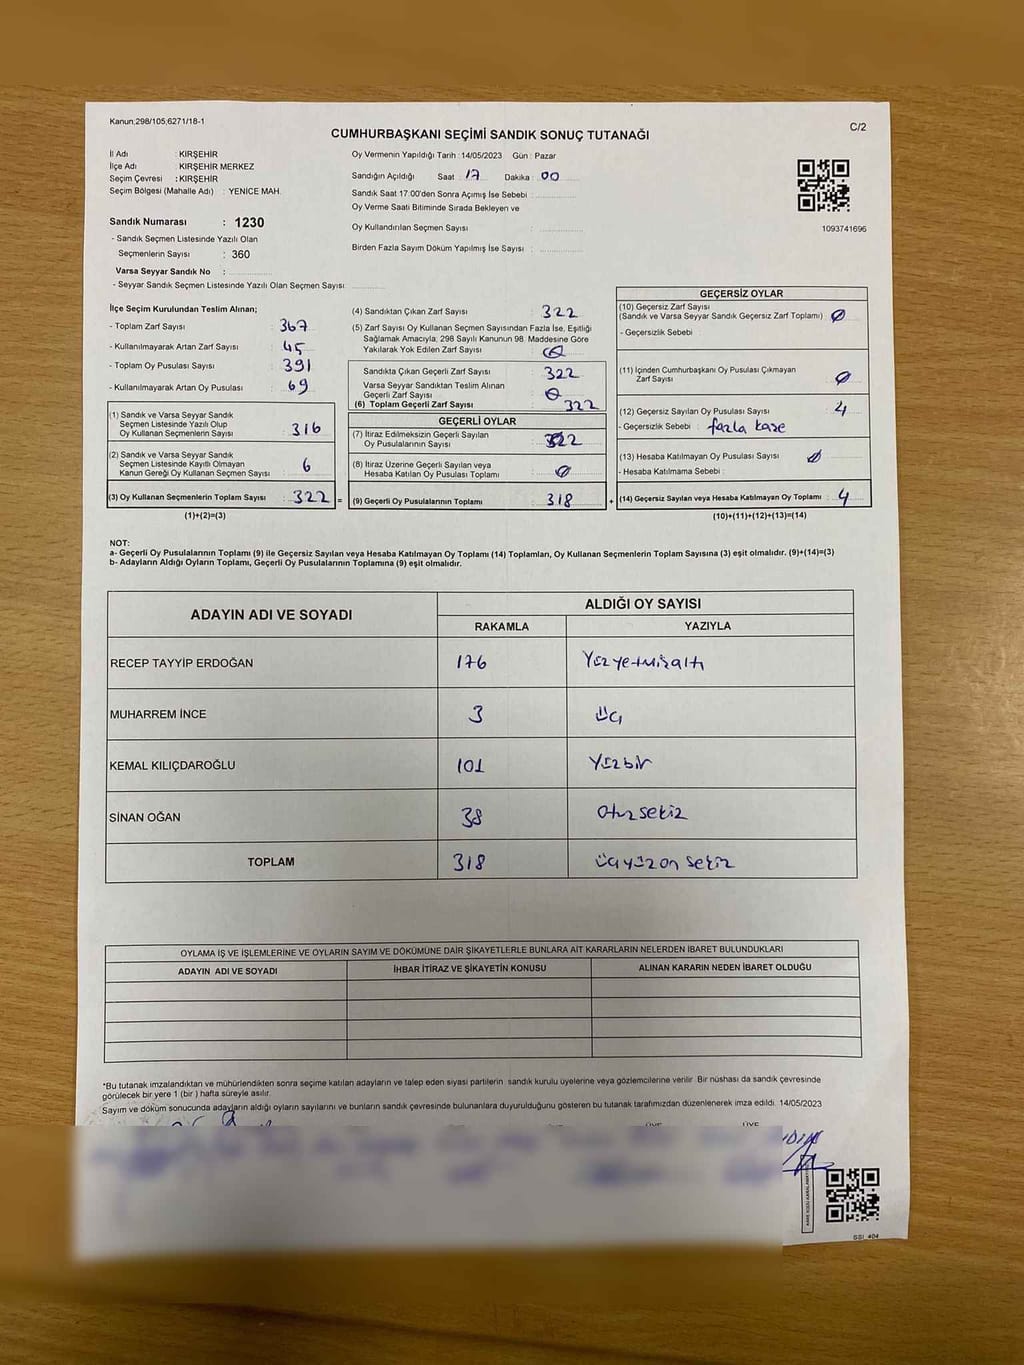 Kanun;298/105;6271/18-1
C/2
CUMHURBAŞKANI SEÇİMİ SANDIK SONUÇ TUTANAĞI
İl Adı : KIRŞEHİR
İlçe Adı : KIRŞEHİR MERKEZ
Seçim Çevresi : KIRŞEHİR
Seçim Bölgesi (Mahalle Adı) : YENİCE MAH.
Sandık Numarası : 1230
- Sandık Seçmen Listesinde Yazılı Olan
Seçmenlerin Sayısı : 360
Varsa Seyyar Sandık No :
- Seyyar Sandık Seçmen Listesinde Yazılı Olan Seçmen Sayısı:
Oy Vermenin Yapıldığı Tarih :14/05/2023 Gün : Pazar
Sandığın Açıldığı Saat : 17 Dakika : 00
Sandık Saat 17:00'den Sonra Açımış İse Sebebi :
Oy Verme Saati Bitiminde Sırada Bekleyen ve
Oy Kullandırılan Seçmen Sayısı :
Birden Fazla Sayım Döküm Yapılmış İse Sayısı :
1093741696
İlçe Seçim Kurulundan Teslim Alınan;
- Toplam Zarf Sayısı : 367
- Kullanılmayarak Artan Zarf Sayısı : 45
- Toplam Oy Pusulası Sayısı : 391
- Kullanılmayarak Artan Oy Pusulası : 69
(1) Sandık ve Varsa Seyyar Sandık
Seçmen Listesinde Yazılı Olup
Oy Kullanan Seçmenlerin Sayısı : 316
(2) Sandık ve Varsa Seyyar Sandık
Seçmen Listesinde Kayıtlı Olmayan
Kanun Gereği Oy Kullanan Seçmen Sayısı : 6
(3) Oy Kullanan Seçmenlerin Toplam Sayısı : 322 =
(1)+(2)=(3)
(4) Sandıktan Çıkan Zarf Sayısı : 322
(5) Zarf Sayısı Oy Kullanan Seçmen Sayısından Fazla İse, Eşitliği
Sağlamak Amacıyla; 298 Sayılı Kanunun 98. Maddesine Göre
Yakılarak Yok Edilen Zarf Sayısı : 0
Sandıkta Çıkan Geçerli Zarf Sayısı : 322
Varsa Seyyar Sandıktan Teslim Alınan
Geçerli Zarf Sayısı : 0
(6) Toplam Geçerli Zarf Sayısı : 322
GEÇERLİ OYLAR
(7) İtiraz Edilmeksizin Geçerli Sayılan
Oy Pusulalarının Sayısı : 322
(8) İtiraz Üzerine Geçerli Sayılan veya
Hesaba Katılan Oy Pusulası Toplamı : 0
(9) Geçerli Oy Pusulalarının Toplamı : 318 +
GEÇERSİZ OYLAR
(10) Geçersiz Zarf Sayısı
(Sandık ve Varsa Seyyar Sandık Geçersiz Zarf Toplamı) : 0
- Geçersizlik Sebebi :
(11) İçinden Cumhurbaşkanı Oy Pusulası Çıkmayan
Zarf Sayısı : 0
(12) Geçersiz Sayılan Oy Pusulası Sayısı : 4
- Geçersizlik Sebebi : fazla kase
(13) Hesaba Katılmayan Oy Pusulası Sayısı : 0
- Hesaba Katılmama Sebebi :
(14) Geçersiz Sayılan veya Hesaba Katılmayan Oy Toplamı : 4
(10)+(11)+(12)+(13)=(14)
NOT:
a- Geçerli Oy Pusulalarının Toplamı (9) ile Geçersiz Sayılan veya Hesaba Katılmayan Oy Toplamı (14) Toplamları, Oy Kullanan Seçmenlerin Toplam Sayısına (3) eşit olmalıdır. (9)+(14)=(3)
b- Adayların Aldığı Oyların Toplamı, Geçerli Oy Pusulalarının Toplamına (9) eşit olmalıdır.
ADAYIN ADI VE SOYADI ALDIĞI OY SAYISI
RAKAMLA YAZIYLA
RECEP TAYYİP ERDOĞAN 176 Yüzyetmişaltı
MUHARREM İNCE 3 üç
KEMAL KILIÇDAROĞLU 101 Yüzbir
SİNAN OĞAN 38 Otuzsekiz
TOPLAM 318 üçyüzon sekiz
OYLAMA İŞ VE İŞLEMLERİNE VE OYLARIN SAYIM VE DÖKÜMÜNE DAİR ŞİKAYETLERLE BUNLARA AİT KARARLARIN NELERDEN İBARET BULUNDUKLARI
ADAYIN ADI VE SOYADI İHBAR İTİRAZ VE ŞİKAYETİN KONUSU ALINAN KARARIN NEDEN İBARET OLDUĞU
*Bu tutanak imzalandıktan ve mühürlendikten sonra seçime katılan adayların ve talep eden siyasi partilerin sandık kurulu üyelerine veya gözlemcilerine verilir. Bir nüshası da sandık çevresinde
görülecek bir yere 1 (bir ) hafta süreyle asılır.
Sayım ve döküm sonucunda adayların aldığı oyların sayılarını ve bunların sandık çevresinde bulunanlara duyurulduğunu gösteren bu tutanak tarafımızdan düzenlenerek imza edildi. 14/05/2023
ÜYE ÜYE
SSI_404